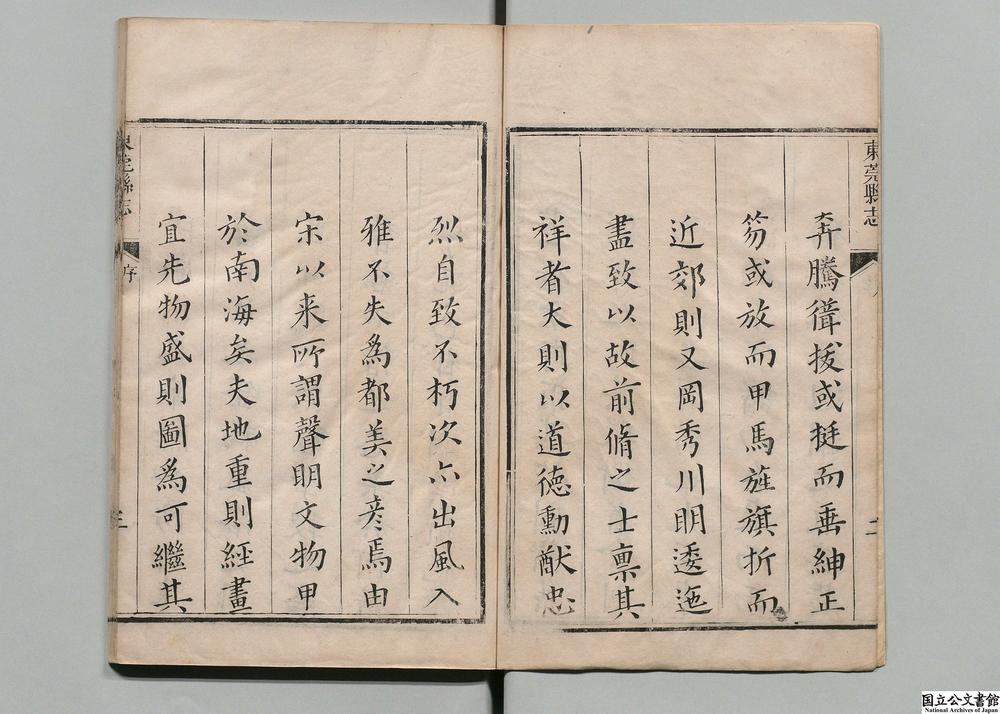 東莞縣志
二
奔騰聳拔或挺而垂紳正
笏或放而甲馬旌旗折而
近郊則又岡秀川明逶迤
盡致以故前脩之士禀其
祥者大則以道德勳猷忠
烈自致不朽次亦出風入
雅不失為都美之彦焉由
宋以来所謂聲明文物甲
於南海矣夫地重則經畫
宜先物盛則圖為可繼其
東莞縣志
序
三
国立公文書館
National Archives of Japan